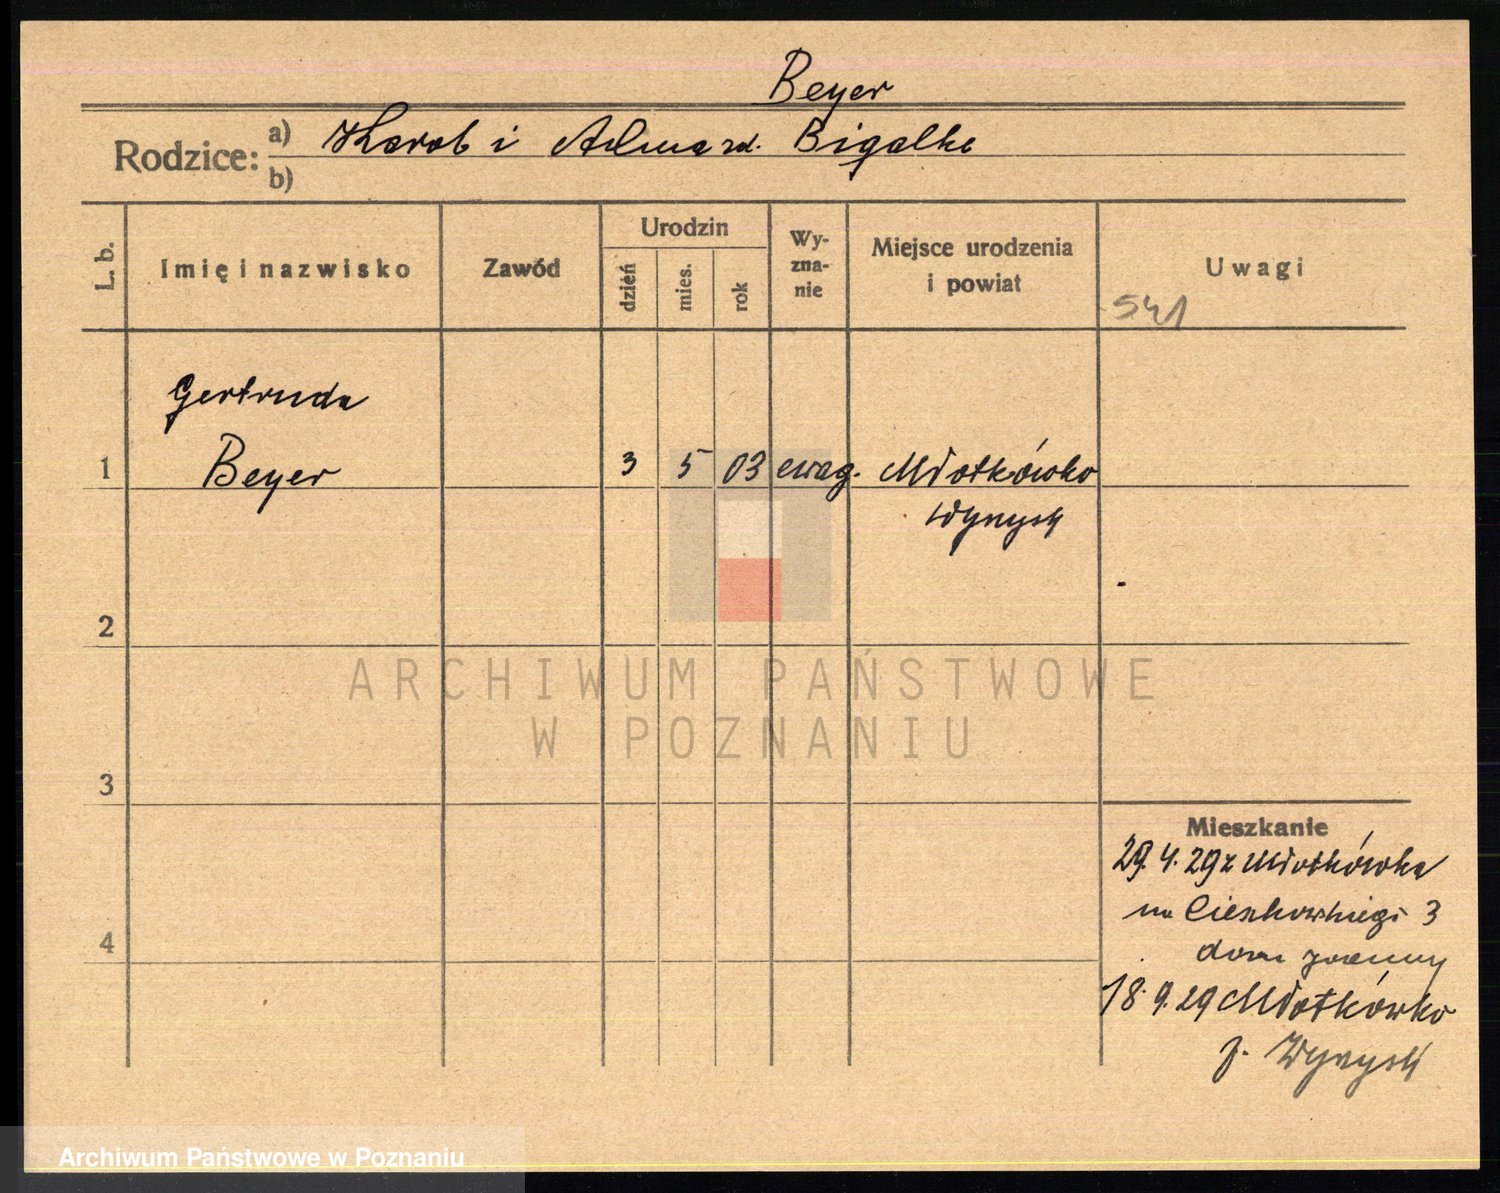 Beyer
Rodzice: a) Karol i Alma zd. Bigalke
b)
L. b.
Imię i nazwisko
Zawód
Urodzin
dzień
mies.
rok
Wy-
zna-
nie
Miejsce urodzenia
i powiat
Uwagi
541
Gertruda
1 Beyer 3 5 03 ewag. Młotkówko
Wyrzysk
2
3
4
Mieszkanie
29. 4. 29 z Młotkówka
na Cieszkowskiego 3
dom
18. 9. 29 Młotkówko
p. Wyrzysk
ARCHIWUM PAŃSTWOWE
W POZNANIU
Archiwum Państwowe w Poznaniu